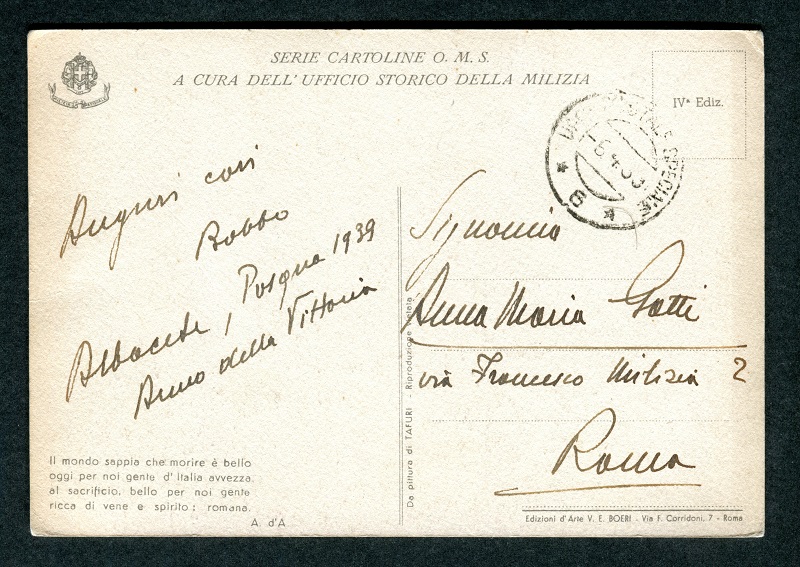 SERIE CARTOLINE O. M. S.
A CURA DELL'UFFICIO STORICO DELLA MILIZIA
IVª Ediz.
UFFICIO POSTALE SPECIALE
6
Auguri cari
Babbo
Albacete, Pasqua 1939
Anno della Vittoria
Il mondo sappia che morire è bello
oggi per noi gente d'Italia avvezza
al sacrificio, bello per noi gente
ricca di vene e spirito: romana.
A. d'A
Da pittura di TAFURI - Riproduzione vietata
Signorina
Anna Maria Gatti
via Francesco Milizia 2
Roma
Edizioni d'Arte V. E. BOERI - Via F. Corridoni, 7 - Roma